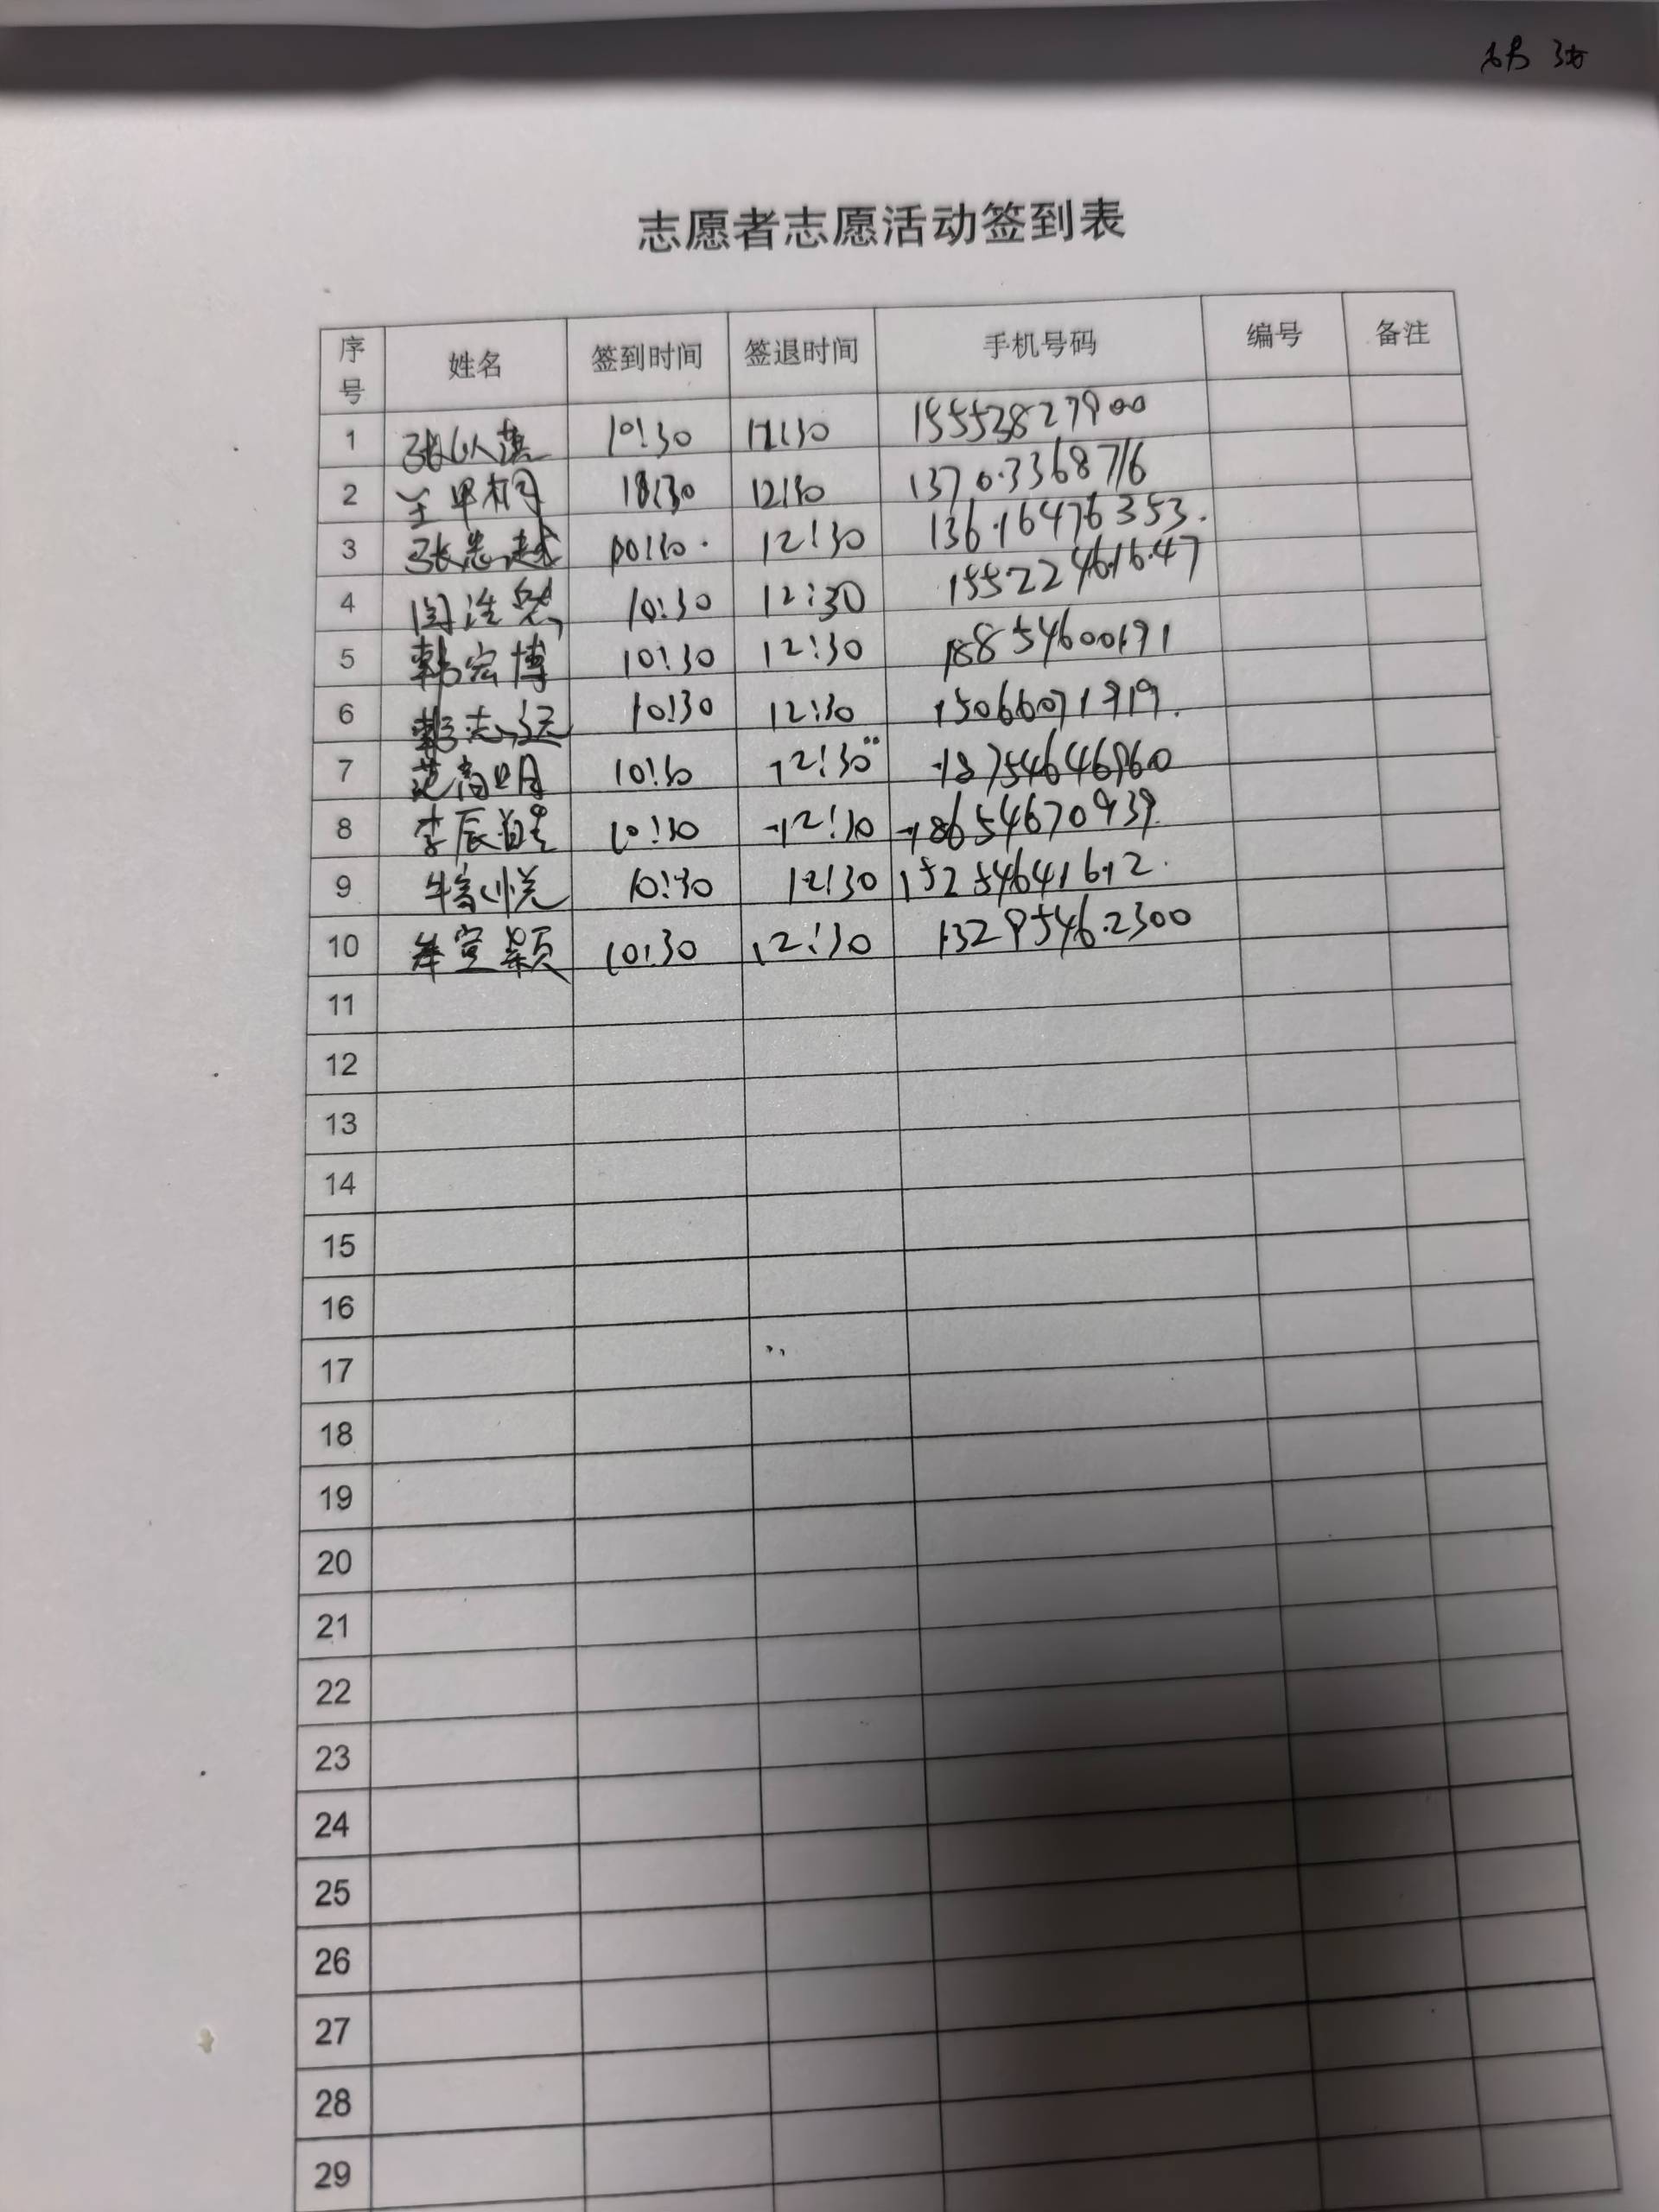 志愿者志愿活动签到表
序号 姓名 签到时间 签退时间 手机号码 编号 备注
1 10:30 12:30 15553827900
2 12:30 13703368716
3 12:30 13616476353
4 10:30 12:30 15522461647
5 韩宏博 10:30 12:30 18854600191
6 10:30 12:30 15066071919
7 范高明 10:30 12:30 18754646960
8 10:30 12:30 18654670939
9 10:30 12:30 15254641612
10 10:30 12:30 13295462300
11
12
13
14
15
16
17
18
19
20
21
22
23
24
25
26
27
28
29